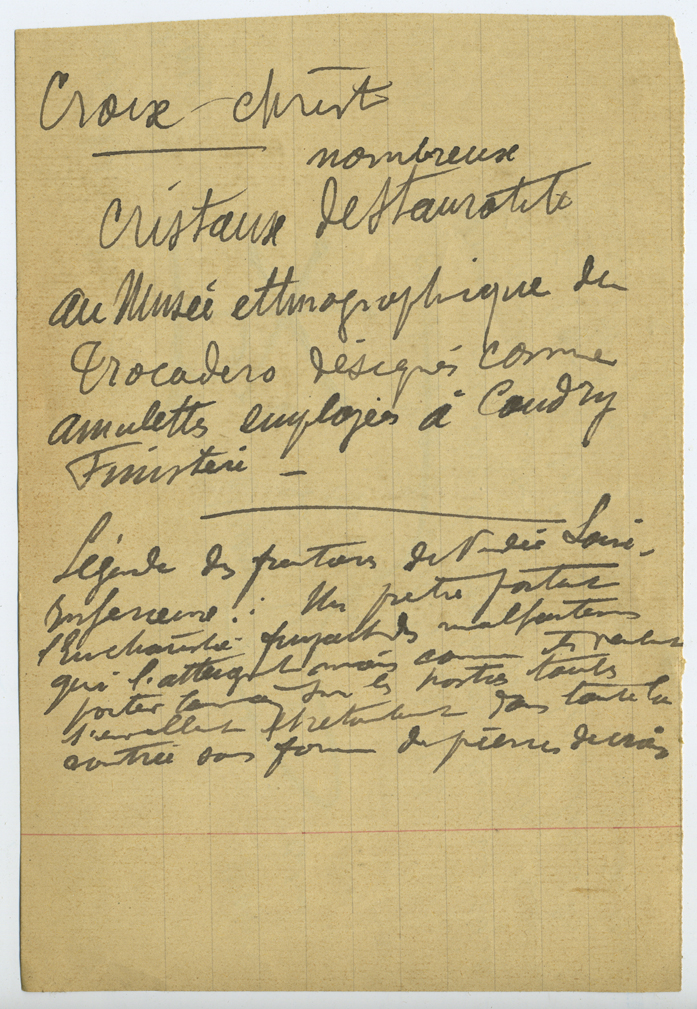 Croix - christ
nombreux
cristaux de Staurotite
au Musée ethnographique du
Trocadero désignés comme
amulettes employées à Coadry
Finistere -
Légende des frontieres de Vendée Loire-
Inferieure : Un pretre portait
l'Eucharistie fuyait des malfaiteurs
qui l'atteignent mais comme ils veulent
porter la main sur les hosties toutes
s'envollent et retombent dans toute la
contrée sous forme de pierres de croix